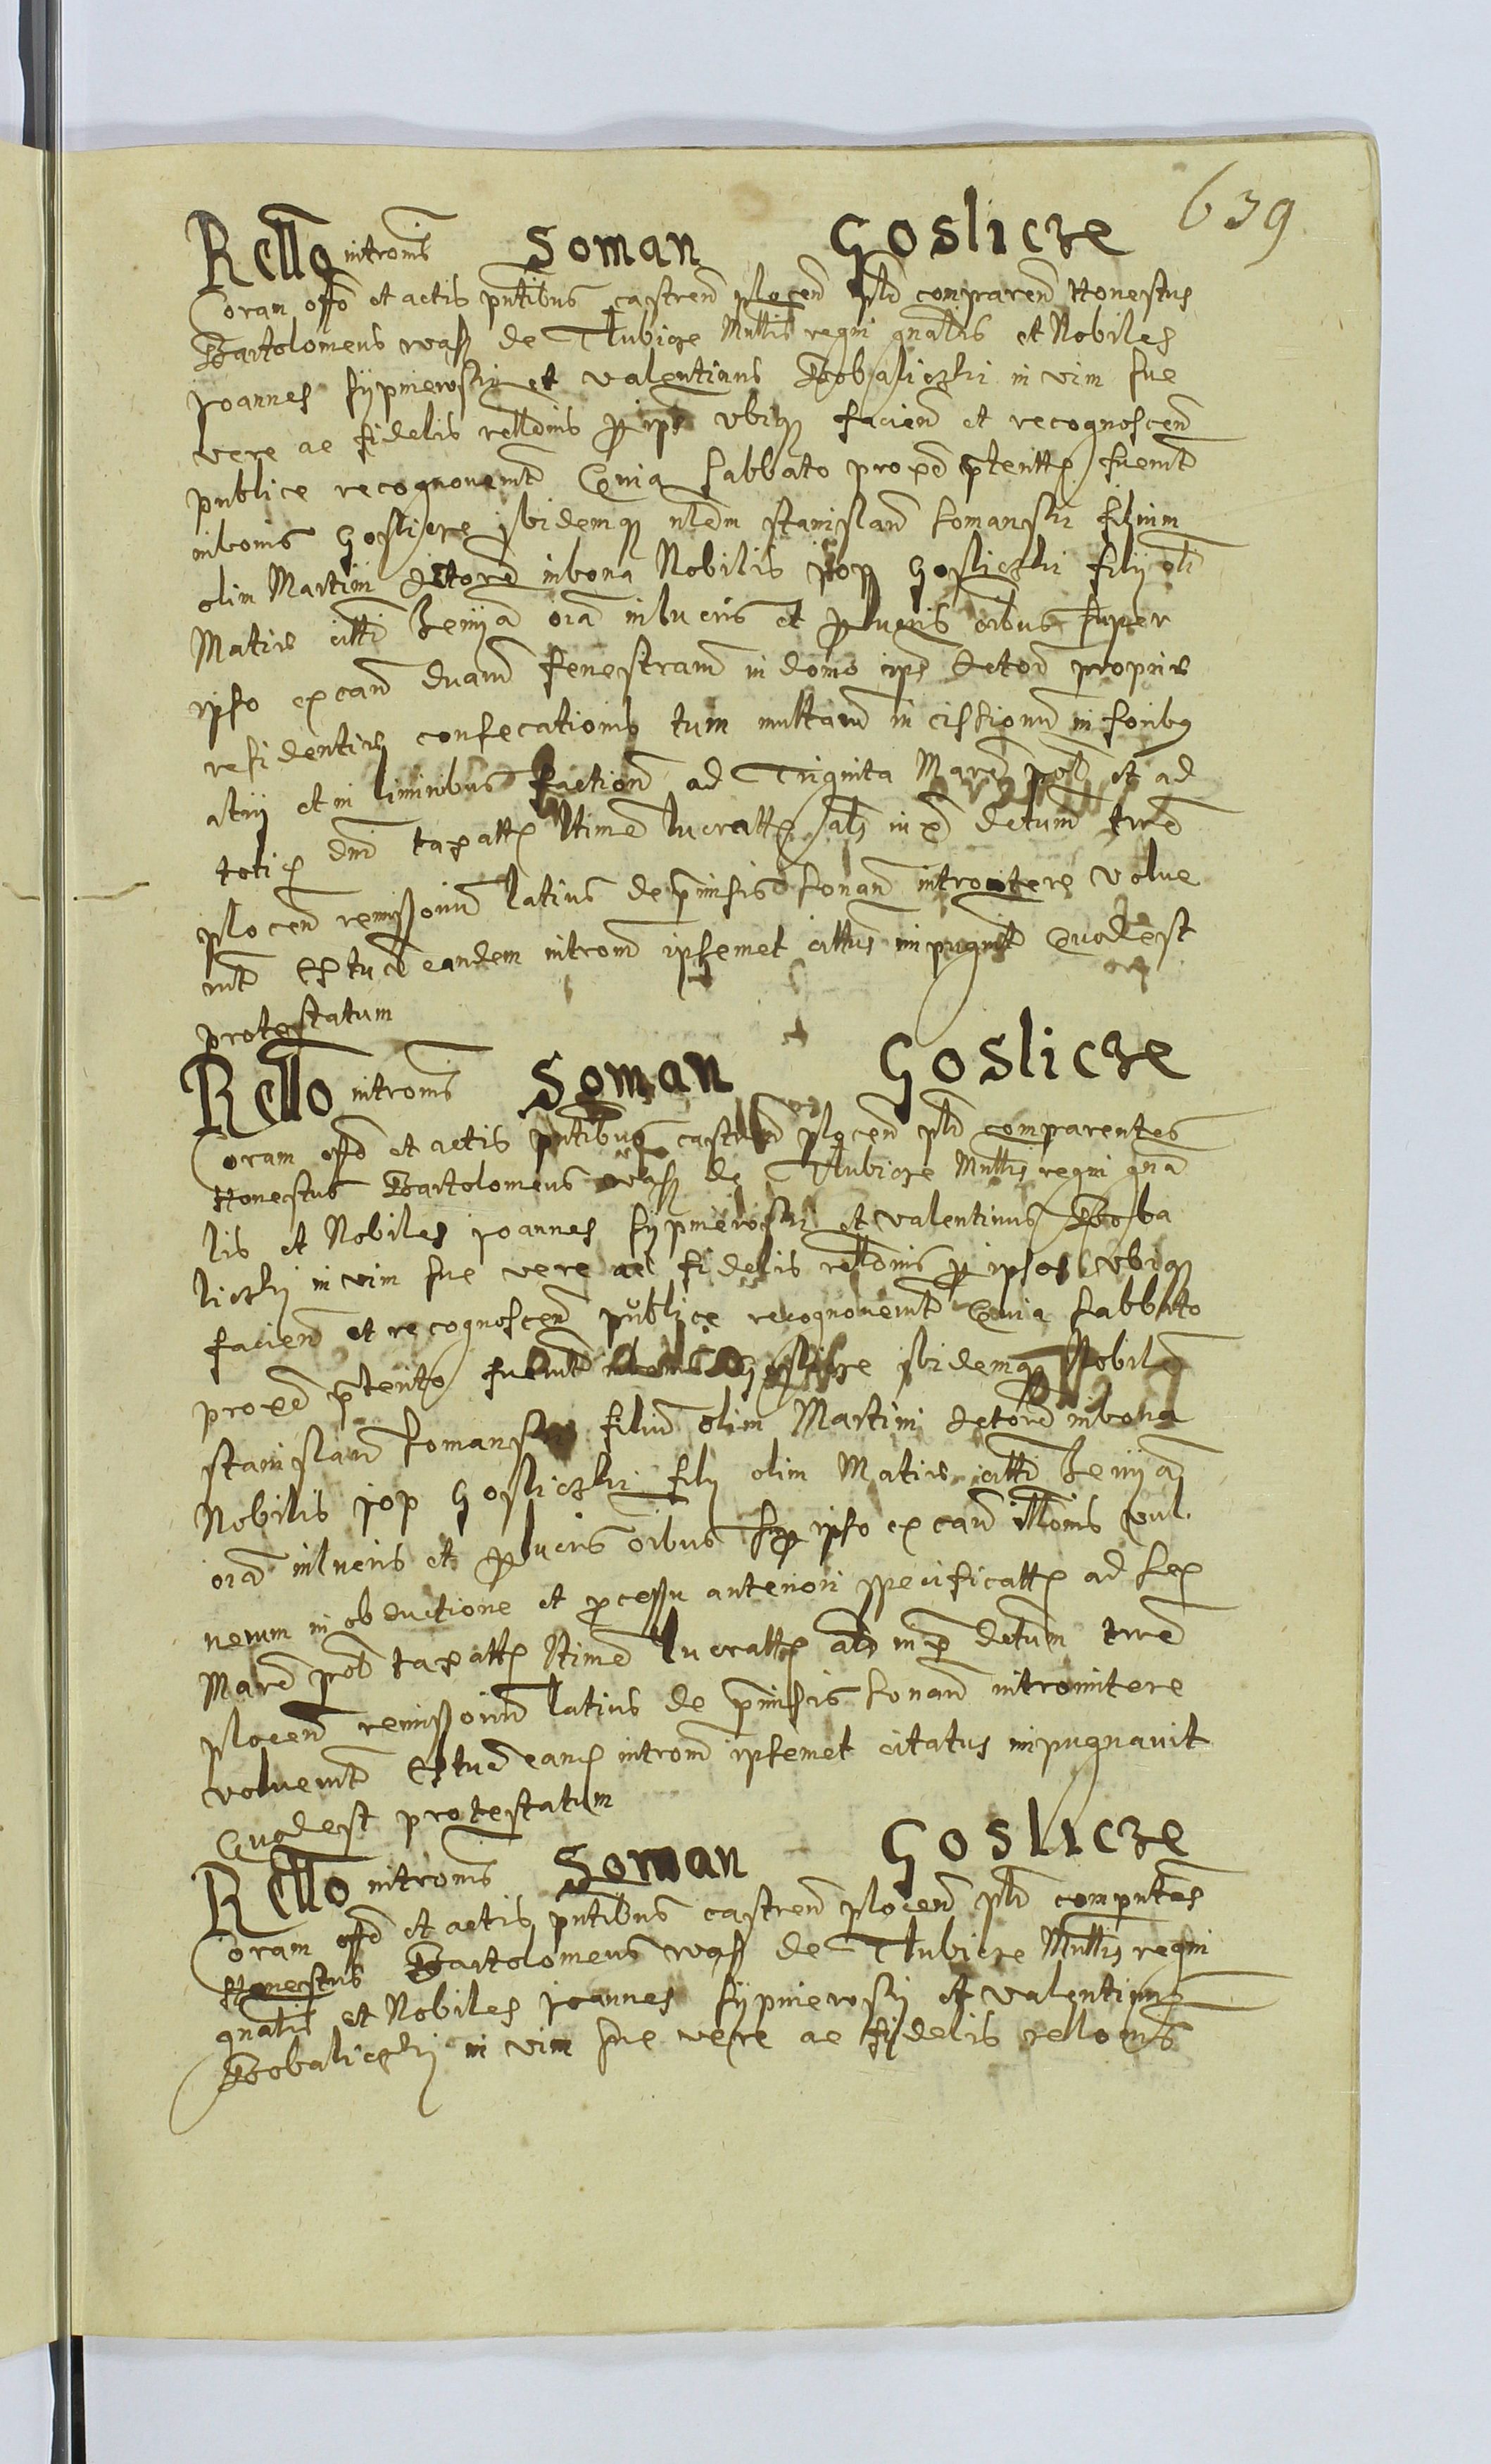 639
Rello intromis Soman Goslicze
Coram offo et actis pntibus castren plocen pld comparen Honestus
Bartolomeus wasz de Tlubicze Mltlis regni gnalis et Nobiles
joannes sypniewskij et valentinus Bobaliczki in vim sue
vere ac fidelis rellonis p ips ubiq facien et recognoscen
publice recognouernt Quia sabbato proxe pterito fuernt
in bonis Goslicze ibidemq nlem stanislaum somanski filium
olim Martini actore in bona Nobilis jop gosliczki filij oli
Matis citti oia in lucris et plucris oibus super
ipso ex cau duaru fenestraru in domo ips actor propriis
residentiis consecationis tum multaru in cissionu in foribq
atrij et in liminibus faction ad Triginta Marc pol et ad
totid taxattis ltime lucrattis als in x detum trre
plocen remissoriu latius de pmissis sonan intromitere volue
rnt Extuc eandem introm ipsemet cittus impugnit Quod est
protestatum
Rello intromis Soman Goslicze
Coram offo et actis pntibus castren plocen pld comparentes
Honestus Bartolomeus wasz de Tlubicze Mltlis regni gna
lis et Nobiles joannes sypniewski et valentinus Boba
liczkij in vim sue vere ac fidelis rellonis p ipsos ubiq
facien et recognoscen publice recognouernt Quia sabbato
proxe pterito fuernt in bonis Goslicze ibidemq Nobilem
stanislau somanski filiu olim Martini actore in bona
Nobilis jop gosliczki filij olim Matis citti
oia in lucris et plucris oibus sup ipso ex cau illonis vul
nerum in obductione et pcessu anteriori specificattis ad sex
Marc pol taxattis ltime lucrattis als in x detum trre
plocen remissoriu latius de pmissis sonan intromitere
voluernt Extuc eand introm ipsemet citatus impugnauit
Quod est protestatum
Rello intromis Soman Goslicze
Coram offo et actis pntibus castren plocen pld compntes
Honestus Bartolomeus wasz de Tlubicze Mltlis regni
gnalis et Nobiles joannes sypniewskij et valentinus
Bobaliczkij in vim sue vere ac fidelis relloms